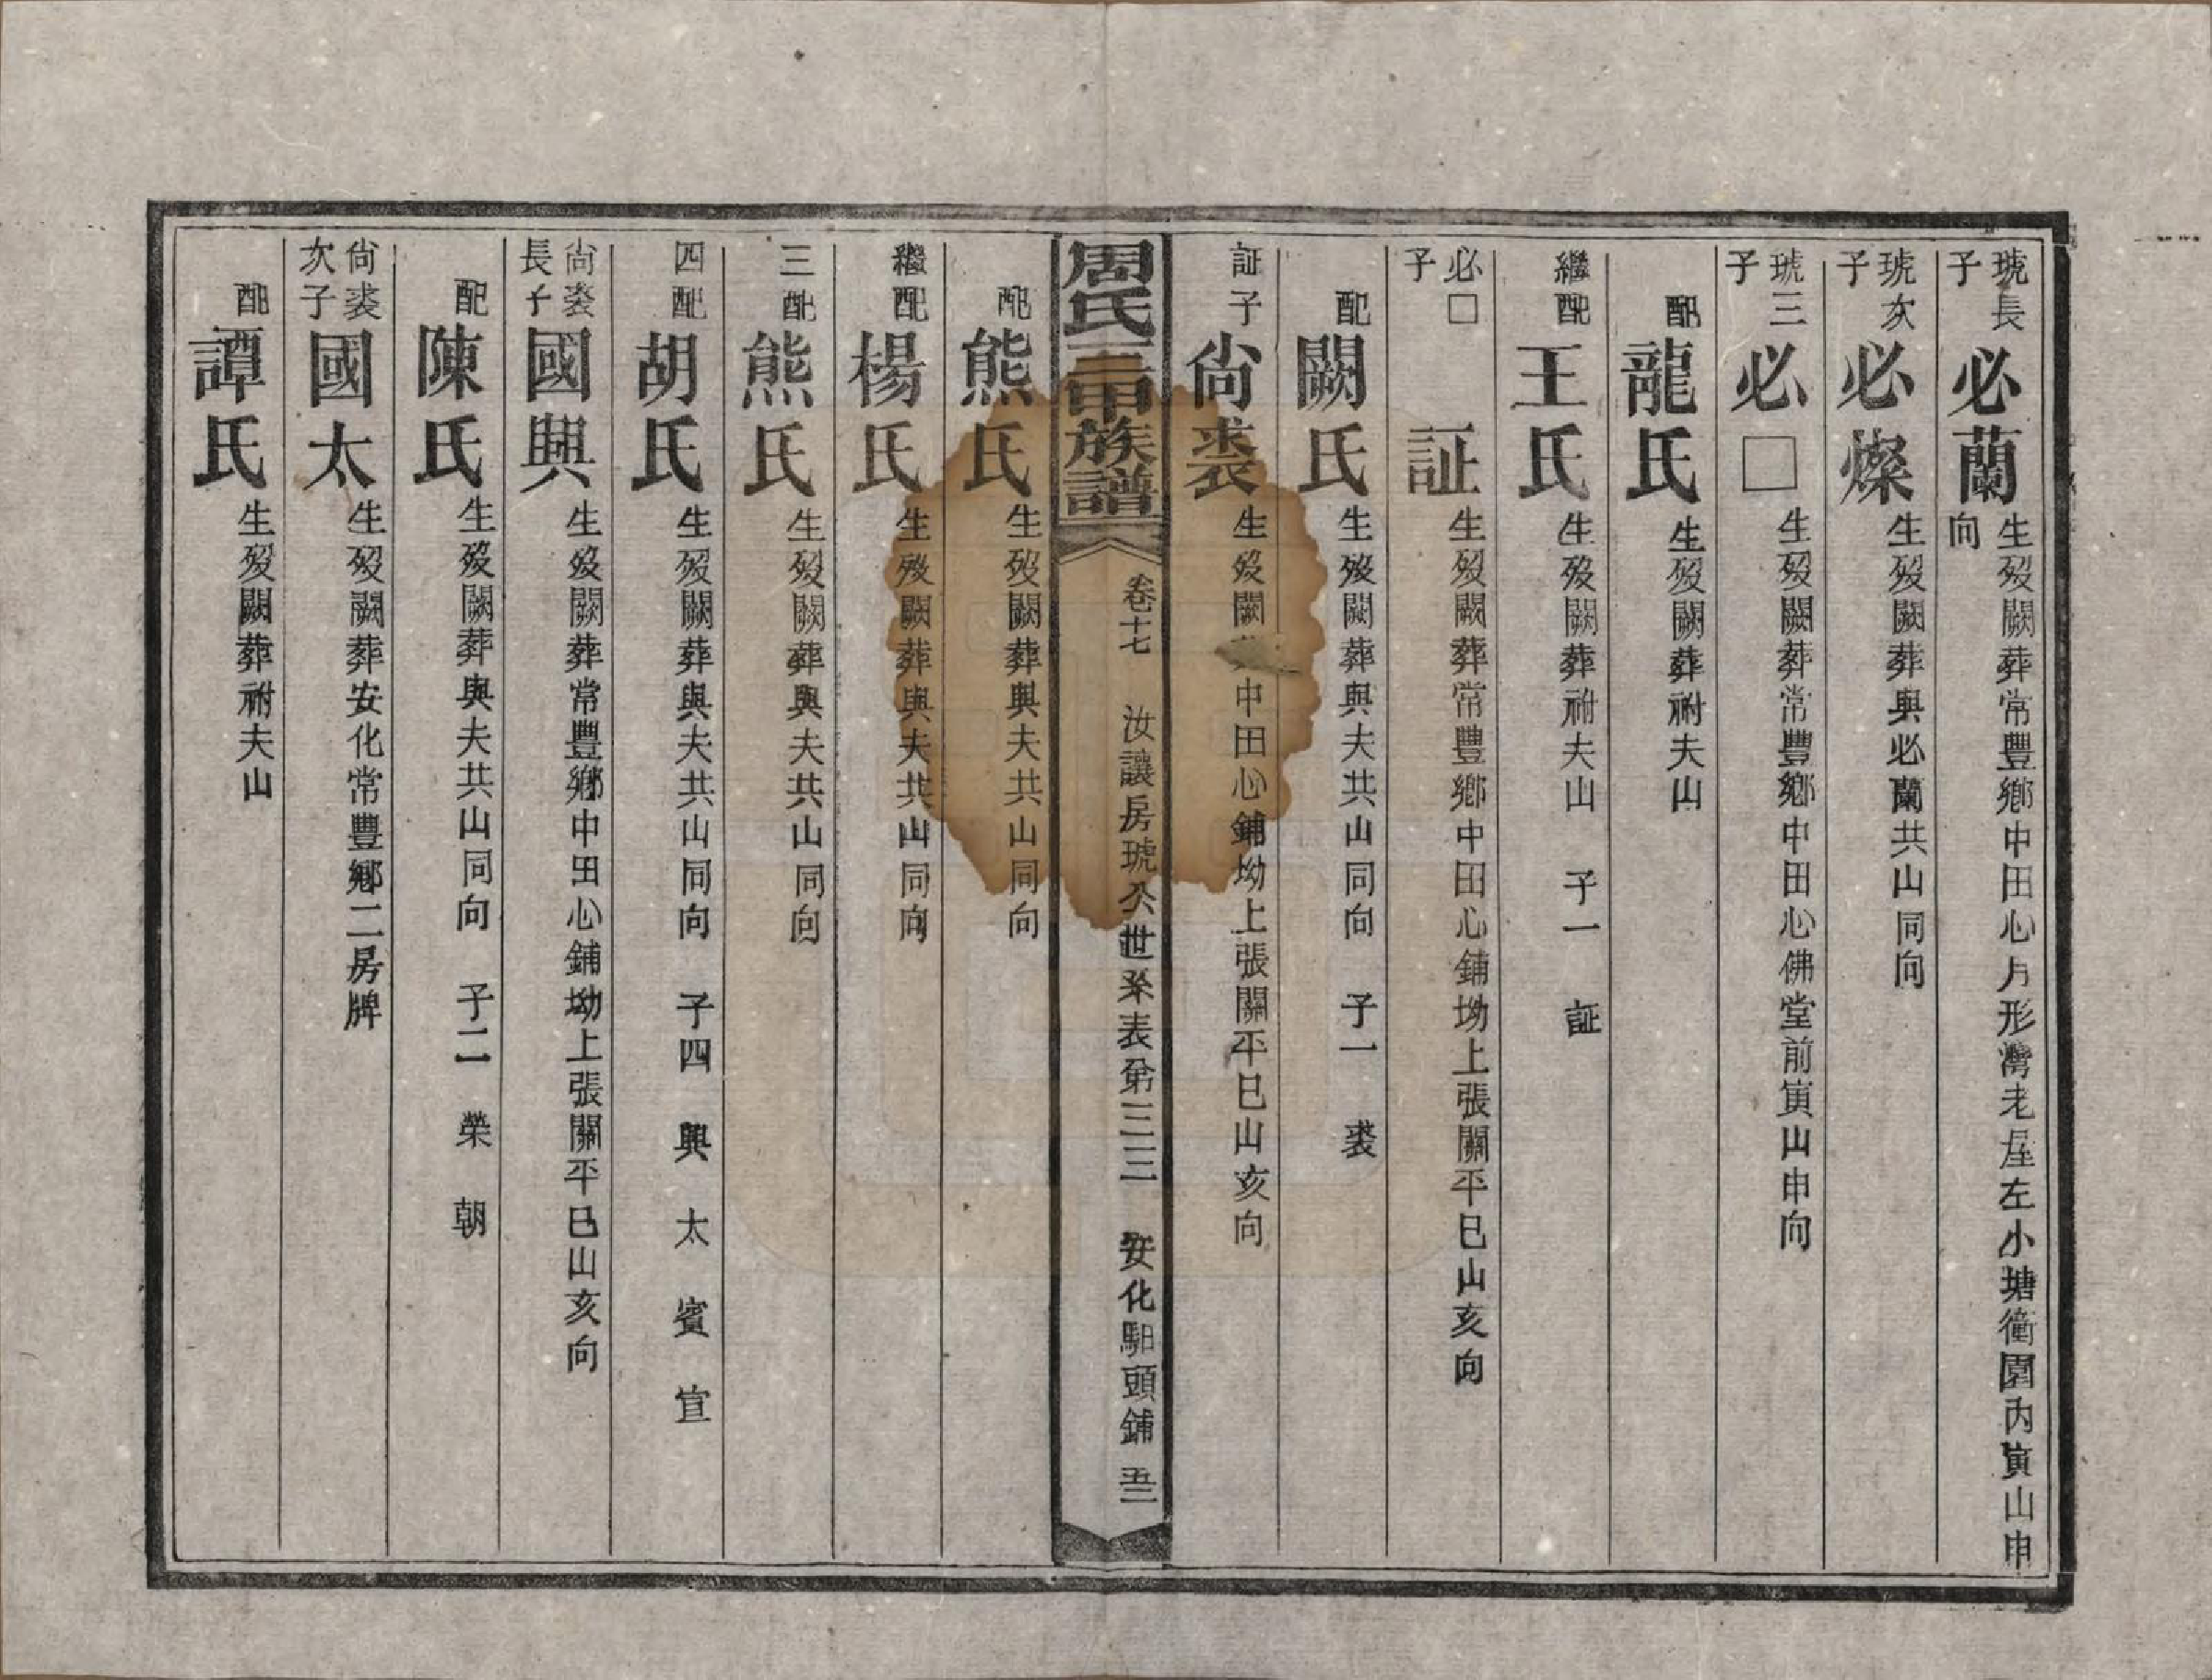 琥長子 必蘭 生歿闕葬常豐鄉中田心月形灣老屋左小塘衝園內寅山申向
琥次子 必燦 生歿闕葬與必蘭共山同向
琥三子 必□ 生歿闕葬常豐鄉中田心佛堂前寅山申向
配 龍氏 生歿闕葬祔夫山
繼配 王氏 生歿闕葬祔夫山 子一 証
必□子 証 生歿闕葬常豐鄉中田心鋪坳上張關平巳山亥向
配 闕氏 生歿闕葬與夫共山同向 子一 裘
証子 尙裘 生歿闕中田心鋪坳上張關平巳山亥向
周氏三甲族譜 卷十七 汝讓房琥公世系表第三三 安化馹頭鋪 五三
配 熊氏 生歿闕葬與夫共山同向
繼配 楊氏 生歿闕葬與夫共山同向
三配 熊氏 生歿闕葬與夫共山同向
四配 胡氏 生歿闕葬與夫共山同向 子四 興 太 賓 宣
尙裘長子 國興 生歿闕葬常豐鄉中田心鋪坳上張關平巳山亥向
配 陳氏 生歿闕葬與夫共山同向 子二 榮 朝
尙裘次子 國太 生歿闕葬安化常豐鄉二房牌
配 譚氏 生歿闕葬祔夫山